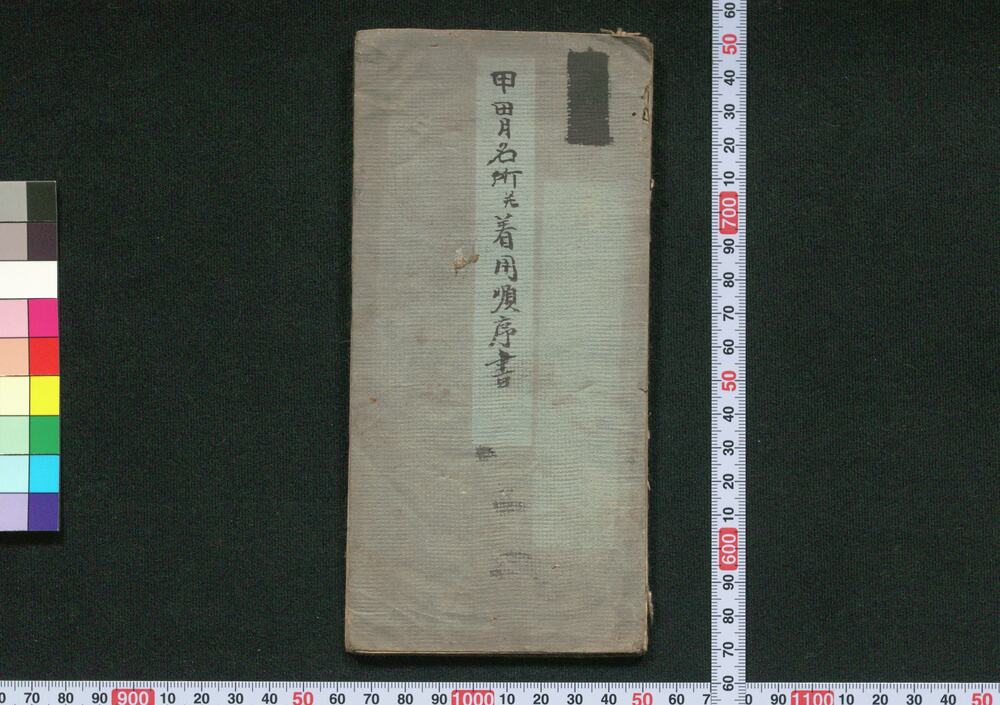 甲冑名所并着用順序書
60
50
40
30
20
10
700
90
80
70
60
50
40
30
20
10
600
90
80
70
60
0 70 80 90 900 10 20 30 40 50 60 70 80 90 1000 10 20 30 40 50 60 7
0 90 1100 10 20 30 40 50